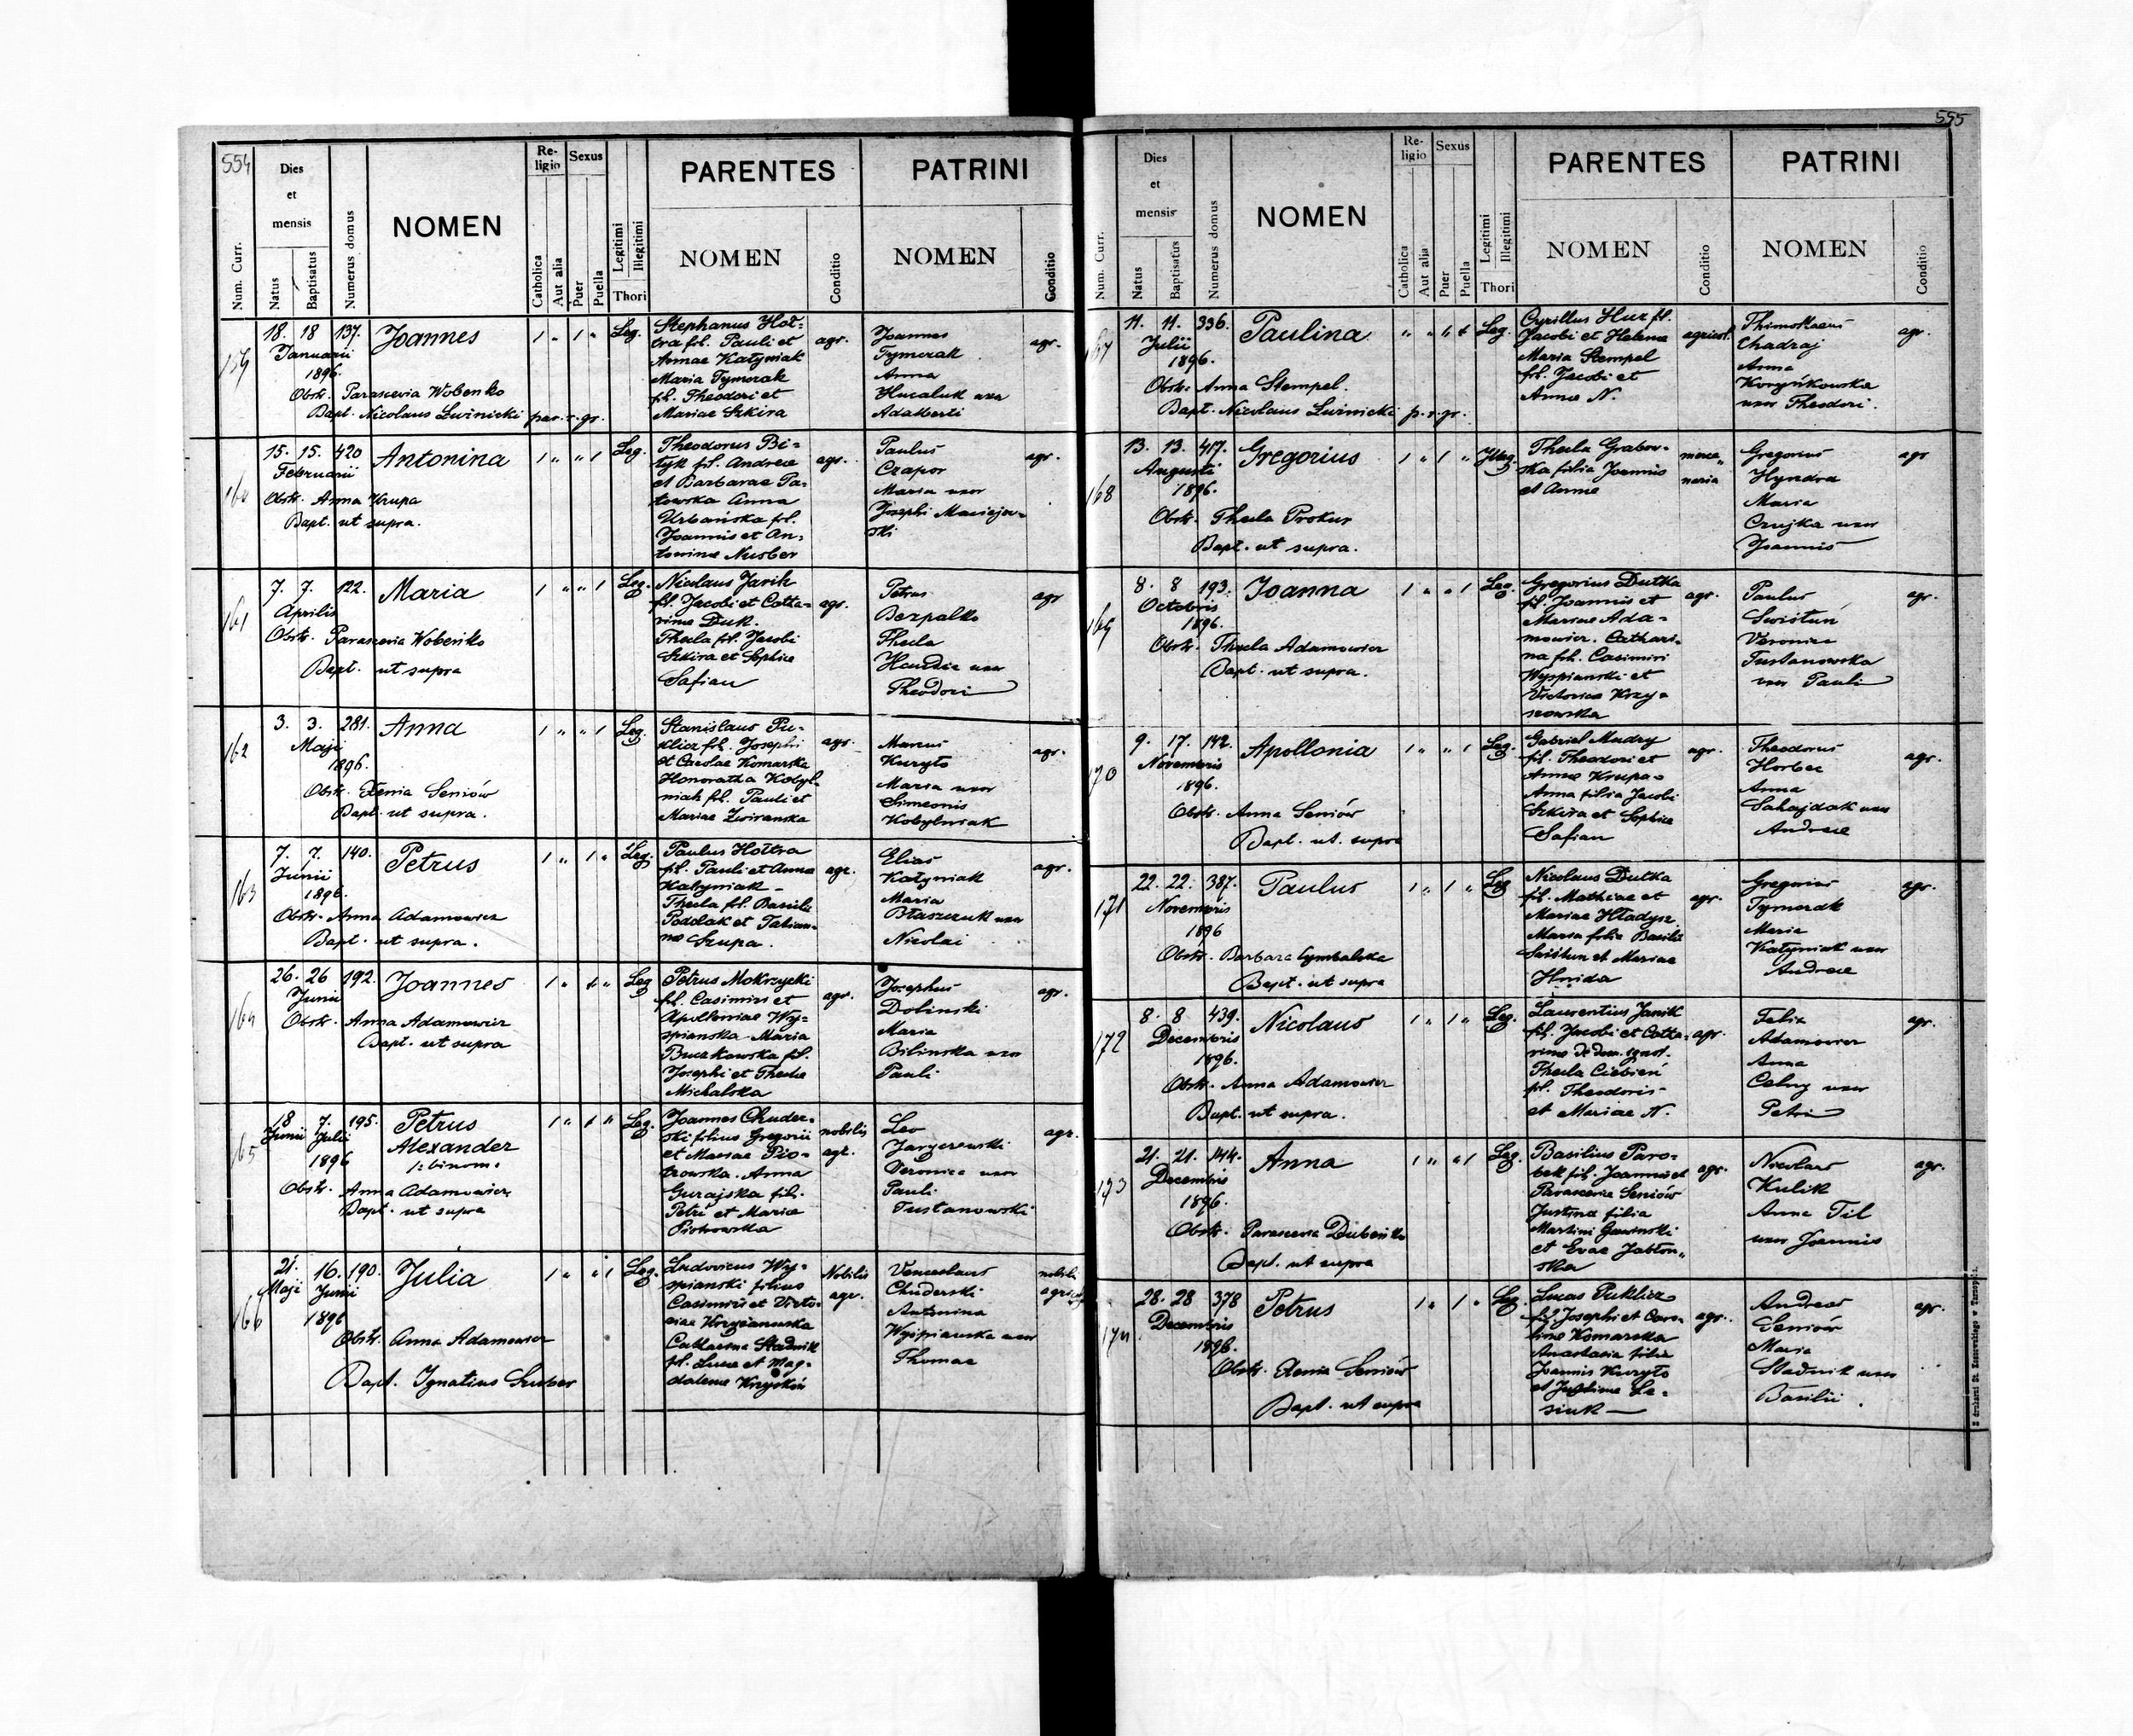 554
Dies
et
mensis
Re-
ligio
Sexus
PARENTES
PATRINI
Num. Curr.
Natus
Baptisatus
Numerus domus
NOMEN
Catholica
Aut alia
Puer
Puella
Legitimi
Illegitimi
Thori
NOMEN
Conditio
NOMEN
Conditio
159
18. 18 137. Joannes
Januarii
1896.
Obstr. Parascevia Wobenko
Bapt. Nicolaus Lwinicki par. r. gr.
Leg.
Stephanus Hoł-
tra fil. Pauli et
Annae Katyniak
Maria Tymczak
fil. Theodori et
Mariae Szkira
agr.
Joannes
Tymczak
Anna
Hucaluk uxor
Adalberti
agr.
160
15. 15. 420 Antonina
Februarii
Obstr. Anna Krupa
Bapt. ut supra.
Leg.
Theodorus Bi-
tyk fil. Andreae
et Barbarae Pa-
towska Anna
Urbańska fil.
Joannis et An-
toninae Nusber
agr.
Paulus
Czapor
Maria uxor
Josephi Maciejow-
ski
agr.
161
7. 7. 122. Maria
Aprilis
Obstr. Parascevia Wobenko
Bapt. ut supra
Leg.
Nicolaus Janik
fil. Jacobi et Catha-
rinae Duk.
Thecla fil. Jacobi
Szkira et Sophiae
Safian
agr.
Petrus
Bezpalko
Thecla
uxor
Theodori
agr
162
3. 3. 281. Anna
Maji
1896.
Obstr. Xenia Seniów
Bapt. ut supra.
Leg.
Stanislaus Pu-
klicz fil. Josephi
et Carolae Komarska
Honoratha Kobyl-
niak fil. Pauli et
Mariae Zwiranska
agr.
Marcus
Kuryło
Maria uxor
Simeonis
Kobylniak
agr.
163
7. 7. 140. Petrus
Junii
1896.
Obstr. Anna Adamowicz
Bapt. ut supra.
Leg.
Paulus Hołtra
fil. Pauli et Annae
Katyniak -
Thecla fil. Basilii
Podolak et Tatian-
nae Szupa.
agr.
Elias
Katyniak
Maria
Błaszczuk uxor
Nicolai
agr.
164
26. 26 192. Joannes
Junii
Obstr. Anna Adamowicz
Bapt. ut supra
Leg
Petrus Mokrzycki
fil. Casimiri et
Apolloniae Wy-
spianska Maria
Buczkowska fil.
Josephi et Theclae
Michalska
agr.
Josephus
Dolinski
Maria
Bilinska uxor
Pauli
agr.
165
18 7. 195. Petrus
Junii Julii Alexander
1896 /: binom.
Obstr. Anna Adamowicz
Bapt. ut supra
Leg.
Joannes Chuder-
ski filius Gregorii
et Mariae Pio-
trowska. Anna
Gurajska fil.
Petri et Mariae
Piotrowska
nobilis
agr.
Leo
Jarzerewski
Veronica uxor
Pauli
Tustanowski
agr.
166
21. 16. 190. Julia
Maji Junii
1896
Obstr. Anna Adamowicz
Bapt. Ignatius Szuber
Leg.
Ludovicus Wy-
spianski filius
Casimiri et Victo-
riae Krzyżanowska
Catharina Stadnik
fil. Lucae et Mag-
dalenae
Nobilis
agr.
Venceslaus
Chuderski
Antonina
Wyśpianska uxor
Thomae
nobilis
555
Dies
et
mensis
Re-
ligio
Sexus
PARENTES
PATRINI
Num. Curr.
Natus
Baptisatus
Numerus domus
NOMEN
Catholica
Aut alia
Puer
Puella
Legitimi
Illegitimi
Thori
NOMEN
Conditio
NOMEN
Conditio
167
11. 11. 336. Paulina
Julii
1896.
Obstr. Anna Stempel.
Bapt. Nicolaus Lwinicki p. r. gr.
Leg.
Cyrillus Huz fil.
Jacobi et Helena
Maria Stempel
fil. Jacobi et
Annae N.
agricol.
Thimotheus
Chadraj
Anna
Korzyńkowska
uxor Theodori.
agr.
168
13. 13. 417. Gregorius
Augusti
1896.
Obstr. Thecla Prokur
Bapt. ut supra.
Illeg.
Thecla Grabow-
ska filia Joannis
et Annae
merce-
naria
Gregorius
Hyndra
Maria
Czujka uxor
Joannis
agr
169
8. 8 193. Joanna
Octobris
1896.
Obstr. Thecla Adamowicz
Bapt. ut supra.
Leg.
Gregorius Dutka
fil. Joannis et
Mariae Ada-
mowicz. Cathari-
na fil. Casimiri
Wyspianski et
Victoriae Krzy-
zowska
agr.
Paulus
Swistun
Veronica
Tustanowska
uxor Pauli
agr.
170
9. 17. 142. Apollonia
Novembris
1896.
Obstr. Anna Seniów
Bapt. ut. supra
Leg.
Gabriel Mudry
fil. Theodori et
Annae Krupa-
Anna filia Jacobi
Szkira et Sophiae
Safian
agr.
Theodorus
Horbec
Anna
Sahajdak uxor
Andreae
agr.
171
22. 22. 387. Paulus
Novembris
1896
Obstr. Barbara Cymbalska
Bapt. ut supra
Leg
Nicolaus Dutka
fil. Mathiae et
Mariae Hładysz
Maria filia Basilii
Swistun et Mariae
Hnida
agr.
Gregorius
Tymczak
Maria
Katyniak uxor
Andreae
agr.
172
8. 8 439. Nicolaus
Decembris
1896.
Obstr. Anna Adamowicz
Bapt. ut supra.
Leg.
Laurentius Janik
fil. Jacobi et Catha-
rinae de dom. ignot.
Thecla Ciebień
fil. Theodoris
et Mariae N.
agr.
Felix
Adamowicz
Anna
uxor
Petri
agr.
173
21. 21. 144. Anna
Decembris
1896.
Obstr. Parascevia Dubeńko
Bapt. ut supra
Leg.
Basilius Paro-
bek fil. Joannis et
Parasceviae Seniów
Justina filia
Martini Gawinski
et Evae Jabłon-
ska
agr.
Nicolaus
Kulik
Anna Til
uxor Joannis
agr.
174
28. 28 378 Petrus
Decembris
1896.
Obstr. Xenia Seniów
Bapt. ut supra
Leg.
Lucas Puklicz
fil. Josephi et Caro-
linae Komarska
Anastasia filia
Joannis Kuryło
et Justinae Le-
siuk
agr.
Andreas
Seniów
Maria
Stadnik uxor
Basilii.
agr.
Z drukarni St. Kossowskiego w Tarnopolu.